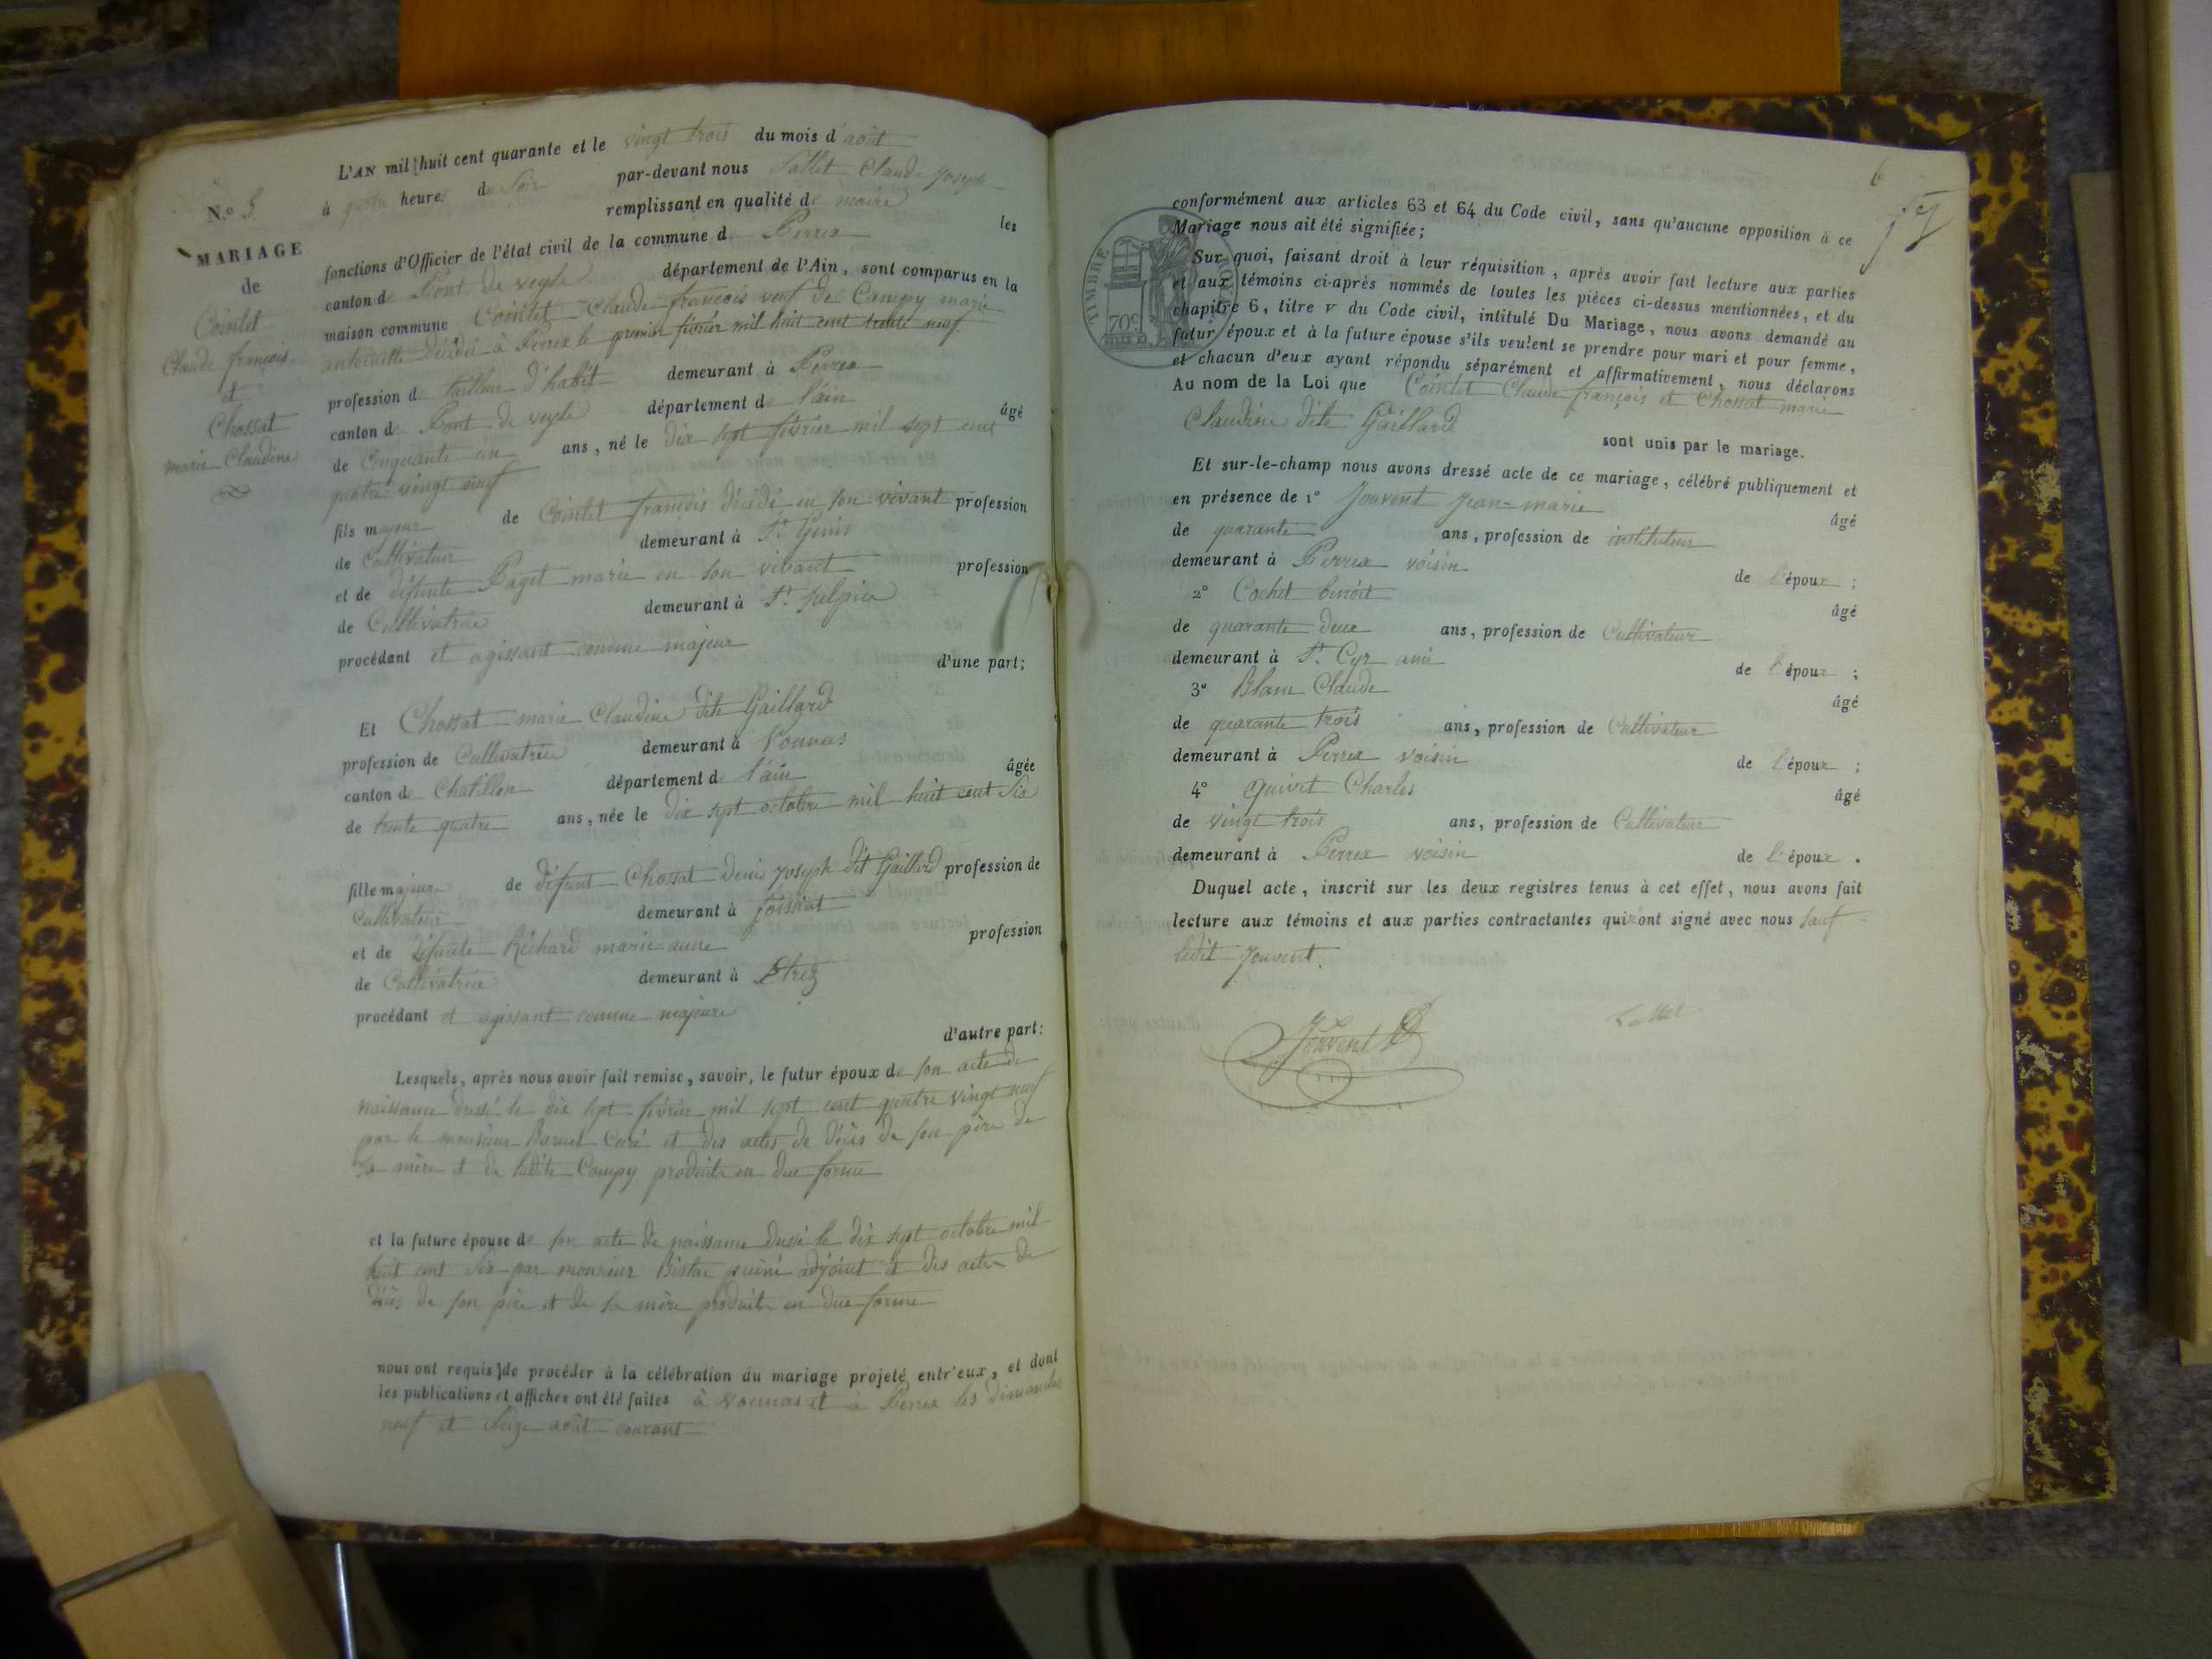 L'AN mil huit cent quarante et le vingt trois du mois d'août
N.º 5. à quatre heures du Soir par-devant nous Sallet Claude Joseph
remplissant en qualité de maire les
MARIAGE
de
Cointet
Claude françois
et
Chossat
marie Claudine
fonctions d'Officier de l'état civil de la commune d Perrex
canton de Pont de veyle département de l'Ain, sont comparus en la
maison commune Cointet Claude françois veuf de Campy marie
antoinette décédée à Perrex le premier février mil huit cent trente neuf
profession de tailleur d'habit demeurant à Perrex
canton de Pont de veyle département de l'ain âgé
de Cinquante un ans, né le dix sept février mil sept cent
quatre vingt neuf
fils majeur de Cointet françois décédé en son vivant profession
de Cultivateur demeurant à St. Genis
et de défunte Paget marie en son vivant profession
de Cultivatrice demeurant à St. Sulpice
procédant et agissant comme majeur
d'une part;
Et Chossat marie Claudine dite Gaillard
profession de Cultivatrice demeurant à Vonnas
canton de Chatillon département de l'ain âgée
de trente quatre ans, née le dix sept octobre mil huit cent Six
fille majeure de défunt Chossat Denis Joseph dit Gaillard profession de
Cultivateur demeurant à foissiat
et de défunte Richard marie anne profession
de Cultivatrice demeurant à Etrez
procédant et agissant comme majeure
d'autre part:
Lesquels, après nous avoir fait remise, savoir, le futur époux de son acte de
naissance dressé le dix sept février mil sept cent quatre vingt neuf
par le monsieur Curé et des actes de décès de son père de
sa mère et de ladite Campy produits en due forme
et la future épouse de son acte de naissance dressé le dix sept octobre mil
huit cent Six par monsieur adjoint et des actes de
décès de son père et de sa mère produits en due forme
nous ont requis de procéder à la célébration du mariage projeté entr'eux, et dont
les publications et affiches ont été faites à Vonnas et à Perrex les dimanches
neuf et Seize août courant
6
conformément aux articles 63 et 64 du Code civil, sans qu'aucune opposition à ce
Mariage nous ait été signifiée;
TIMBRE ROYAL
70c
Sur quoi, faisant droit à leur réquisition, après avoir fait lecture aux parties
et aux témoins ci-après nommés de toutes les pièces ci-dessus mentionnées, et du
chapitre 6, titre V du Code civil, intitulé Du Mariage, nous avons demandé au
futur époux et à la future épouse s'ils veulent se prendre pour mari et pour femme,
et chacun d'eux ayant répondu séparément et affirmativement, nous déclarons
Au nom de la Loi que Cointet Claude françois et Chossat marie
Claudine dite Gaillard
sont unis par le mariage.
Et sur-le-champ nous avons dressé acte de ce mariage, célébré publiquement et
en présence de 1º Jouvent Jean-marie âgé
de quarante ans, profession de instituteur
demeurant à Perrex voisin de l'époux;
2º Cochet benoit âgé
de quarante deux ans, profession de Cultivateur
demeurant à St. Cyr ami de l'époux;
3º Blanc Claude âgé
de quarante trois ans, profession de Cultivateur
demeurant à Perrex voisin de l'époux;
4º Guivet Charles âgé
de vingt trois ans, profession de Cultivateur
demeurant à Perrex voisin de l'époux.
Duquel acte, inscrit sur les deux registres tenus à cet effet, nous avons fait
lecture aux témoins et aux parties contractantes qui n'ont signé avec nous sauf
ledit Jouvent.
Jouvent Sallet